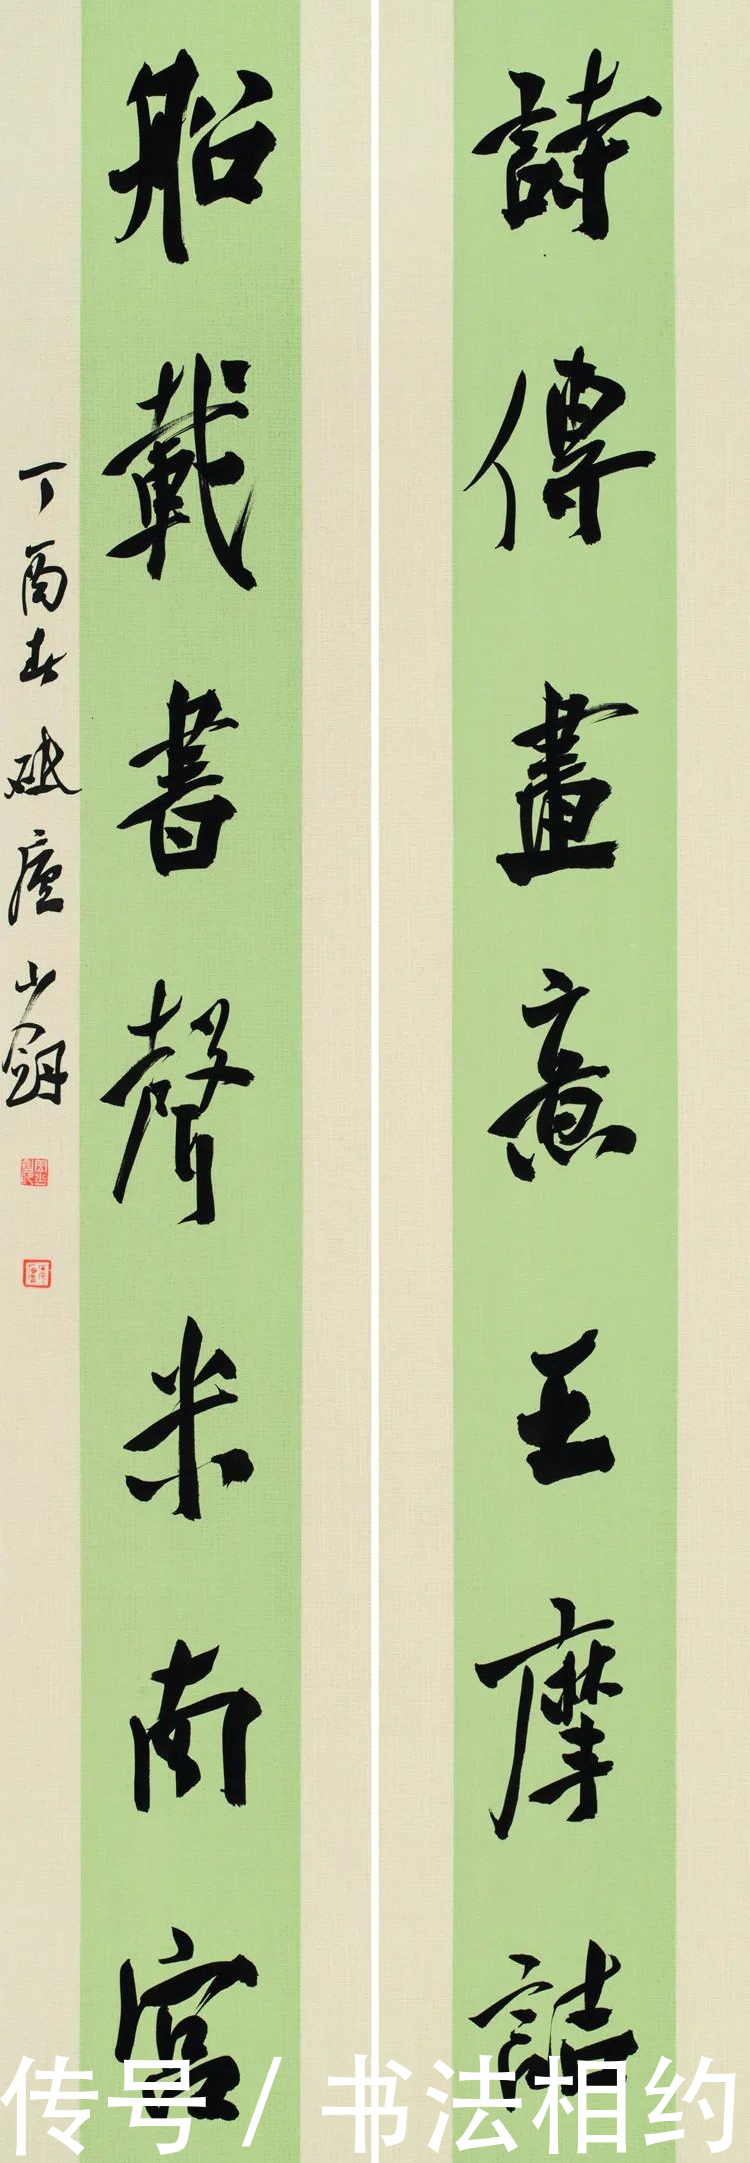 詩傳畫意王摩詰
船載書聲米南宮
丁酉春
传号 / 书法相约